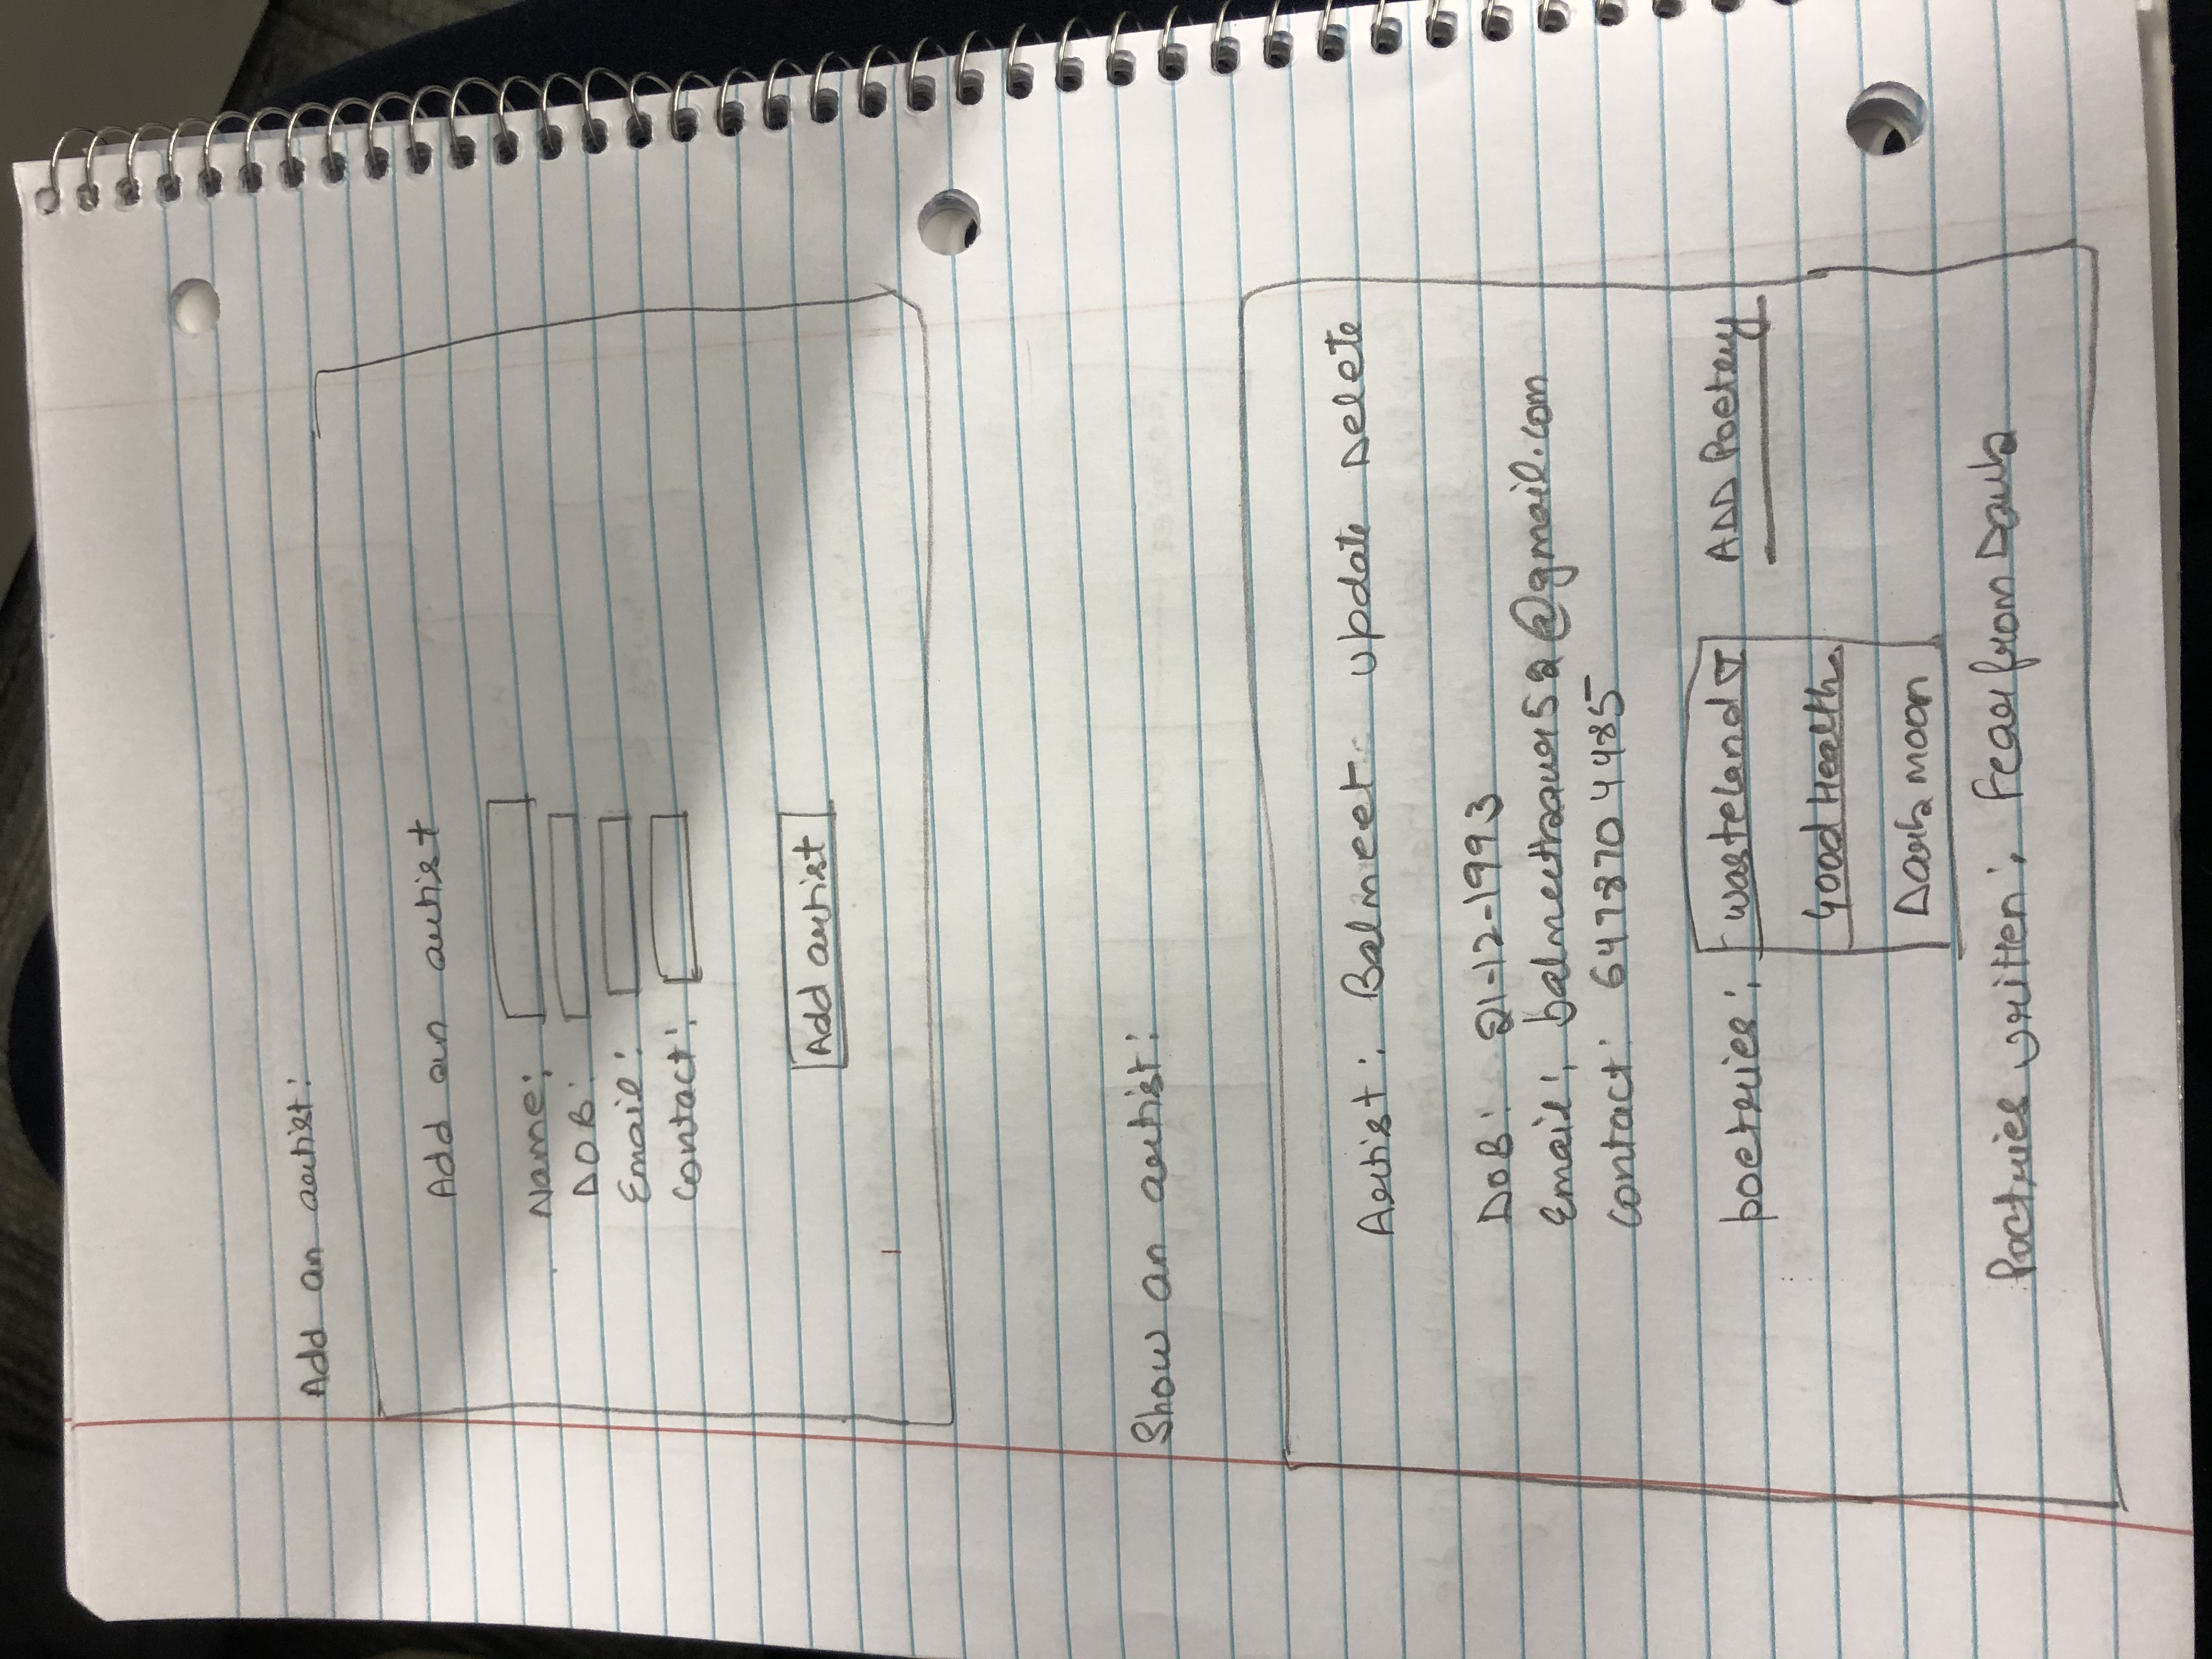 Add an artist:
Add an artist
Name:
DOB:
Email:
Contact:
Add artist
Show an artist:
Artist: Balmeet update Delete
DOB: 21-12-1993
Email: balmeetkaur52@gmail.com
Contact: 6478704485
poetries: wasteland ADD Poetry
Good Health
Dark moon
Poetries written: Fear from Dark